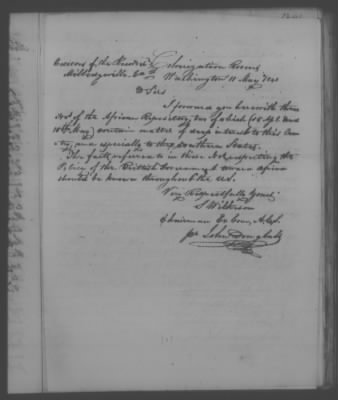 Editors of the Recorder Colonization Rooms
Milledgeville, Ga Washington 11 May 1841
D Sirs
I forward you herewith three
Nos of the African Repository, two of which (15 Apl. and
May) contain matter of deep interest to this Coun
try, and specially to the southern States.
The facts referred to in these Nos respecting the
Policy of the British Government toward Africa
should be known throughout the U.S.
Very Respectfully Yours
S Wilkeson
Chairman Ex Com, A.C.S.
per